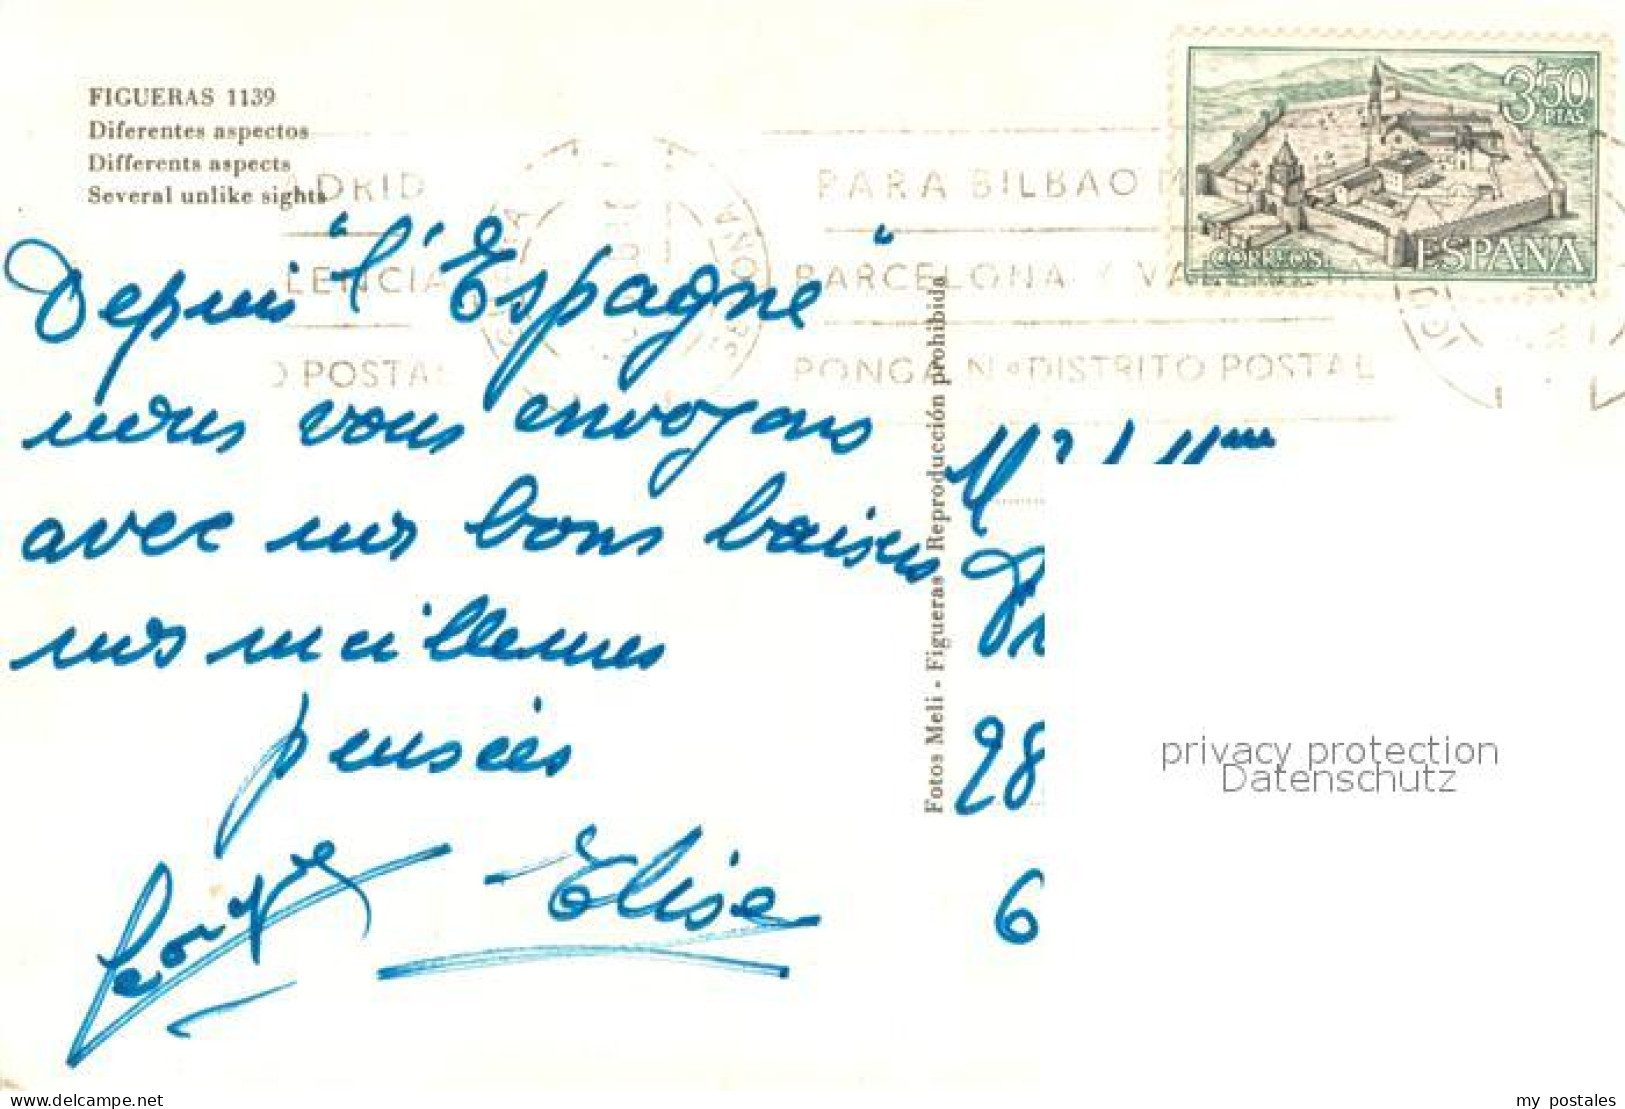 FIGUERAS 1139
Diferentes aspectos
Differents aspects
Several unlike sights
3'50
PTAS
CORREOS
ESPAÑA
ADRID
LENCIA
O POSTAL
PARA BILBAO
BARCELONA Y VA
PONGA N.º DISTRITO POSTAL
Depuis "l'Espagne"
nous vous envoyons
avec nos bons baisers
nos meilleures
pensées
Elise
Fotos Meli - Figueras - Reproducción prohibida
28
6
privacy protection
Datenschutz
my_postales